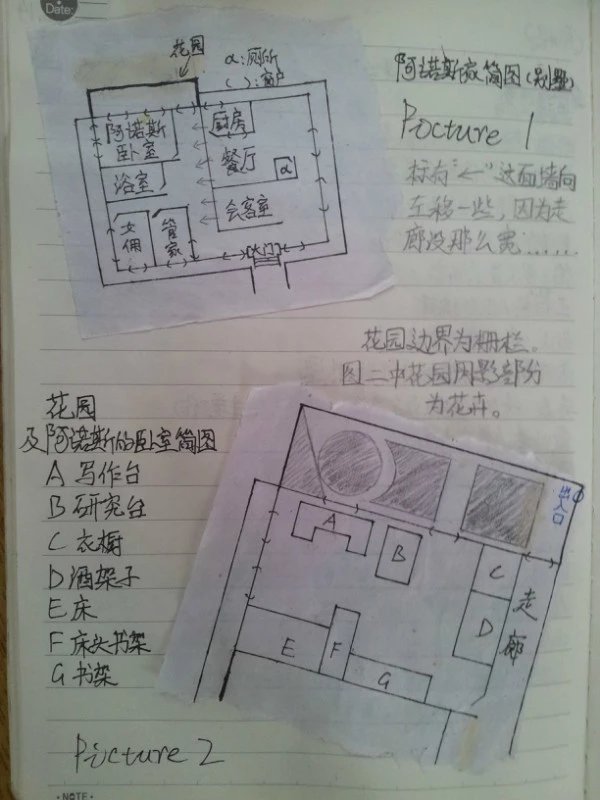 Date:
花园
α:厕所
( ):窗户
阿诺斯家简图(别墅)
Picture 1
标有"←"这面墙向
左移一些,因为走
廊没那么宽……
阿诺斯
卧室
浴室
女佣
管家
厨房
餐厅
α
会客室
大门
花园边界为栅栏。
图二中花园阴影部分
为花卉。
花园
及阿诺斯的卧室简图
A 写作台
B 研究台
C 衣橱
D 酒架子
E 床
F 床头书架
G 书架
Picture 2
出入口
A
B
C
D
E
F
G
走廊
·NOTE·